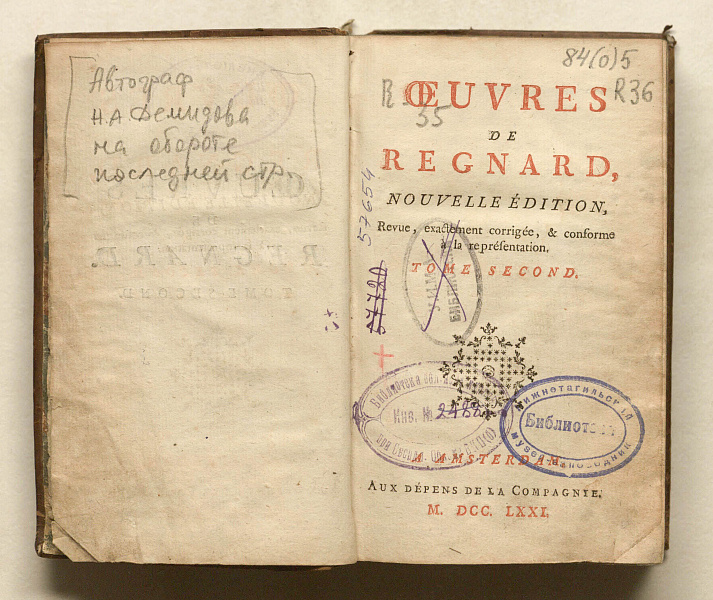 Автограф
Н.А Демидова
на обороте
последней стр.
84(0)5
R36
R
35
ŒUVRES
DE
REGNARD,
NOUVELLE ÉDITION,
Revue, exactement corrigée, & conforme
à la représentation.
TOME SECOND.
57654
57720
Инв. №
Библиотека
A AMSTERDAM,
AUX DÉPENS DE LA COMPAGNIE.
M. DCC. LXXI.